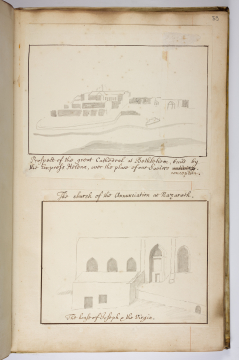 33
Prospect of the great Cathedral at Bethlehem, built by
the Empress Helena, over the place of our Saviors
conception.
The church of the Annunciation in Nazareth.
The house of Joseph & the Virgin.